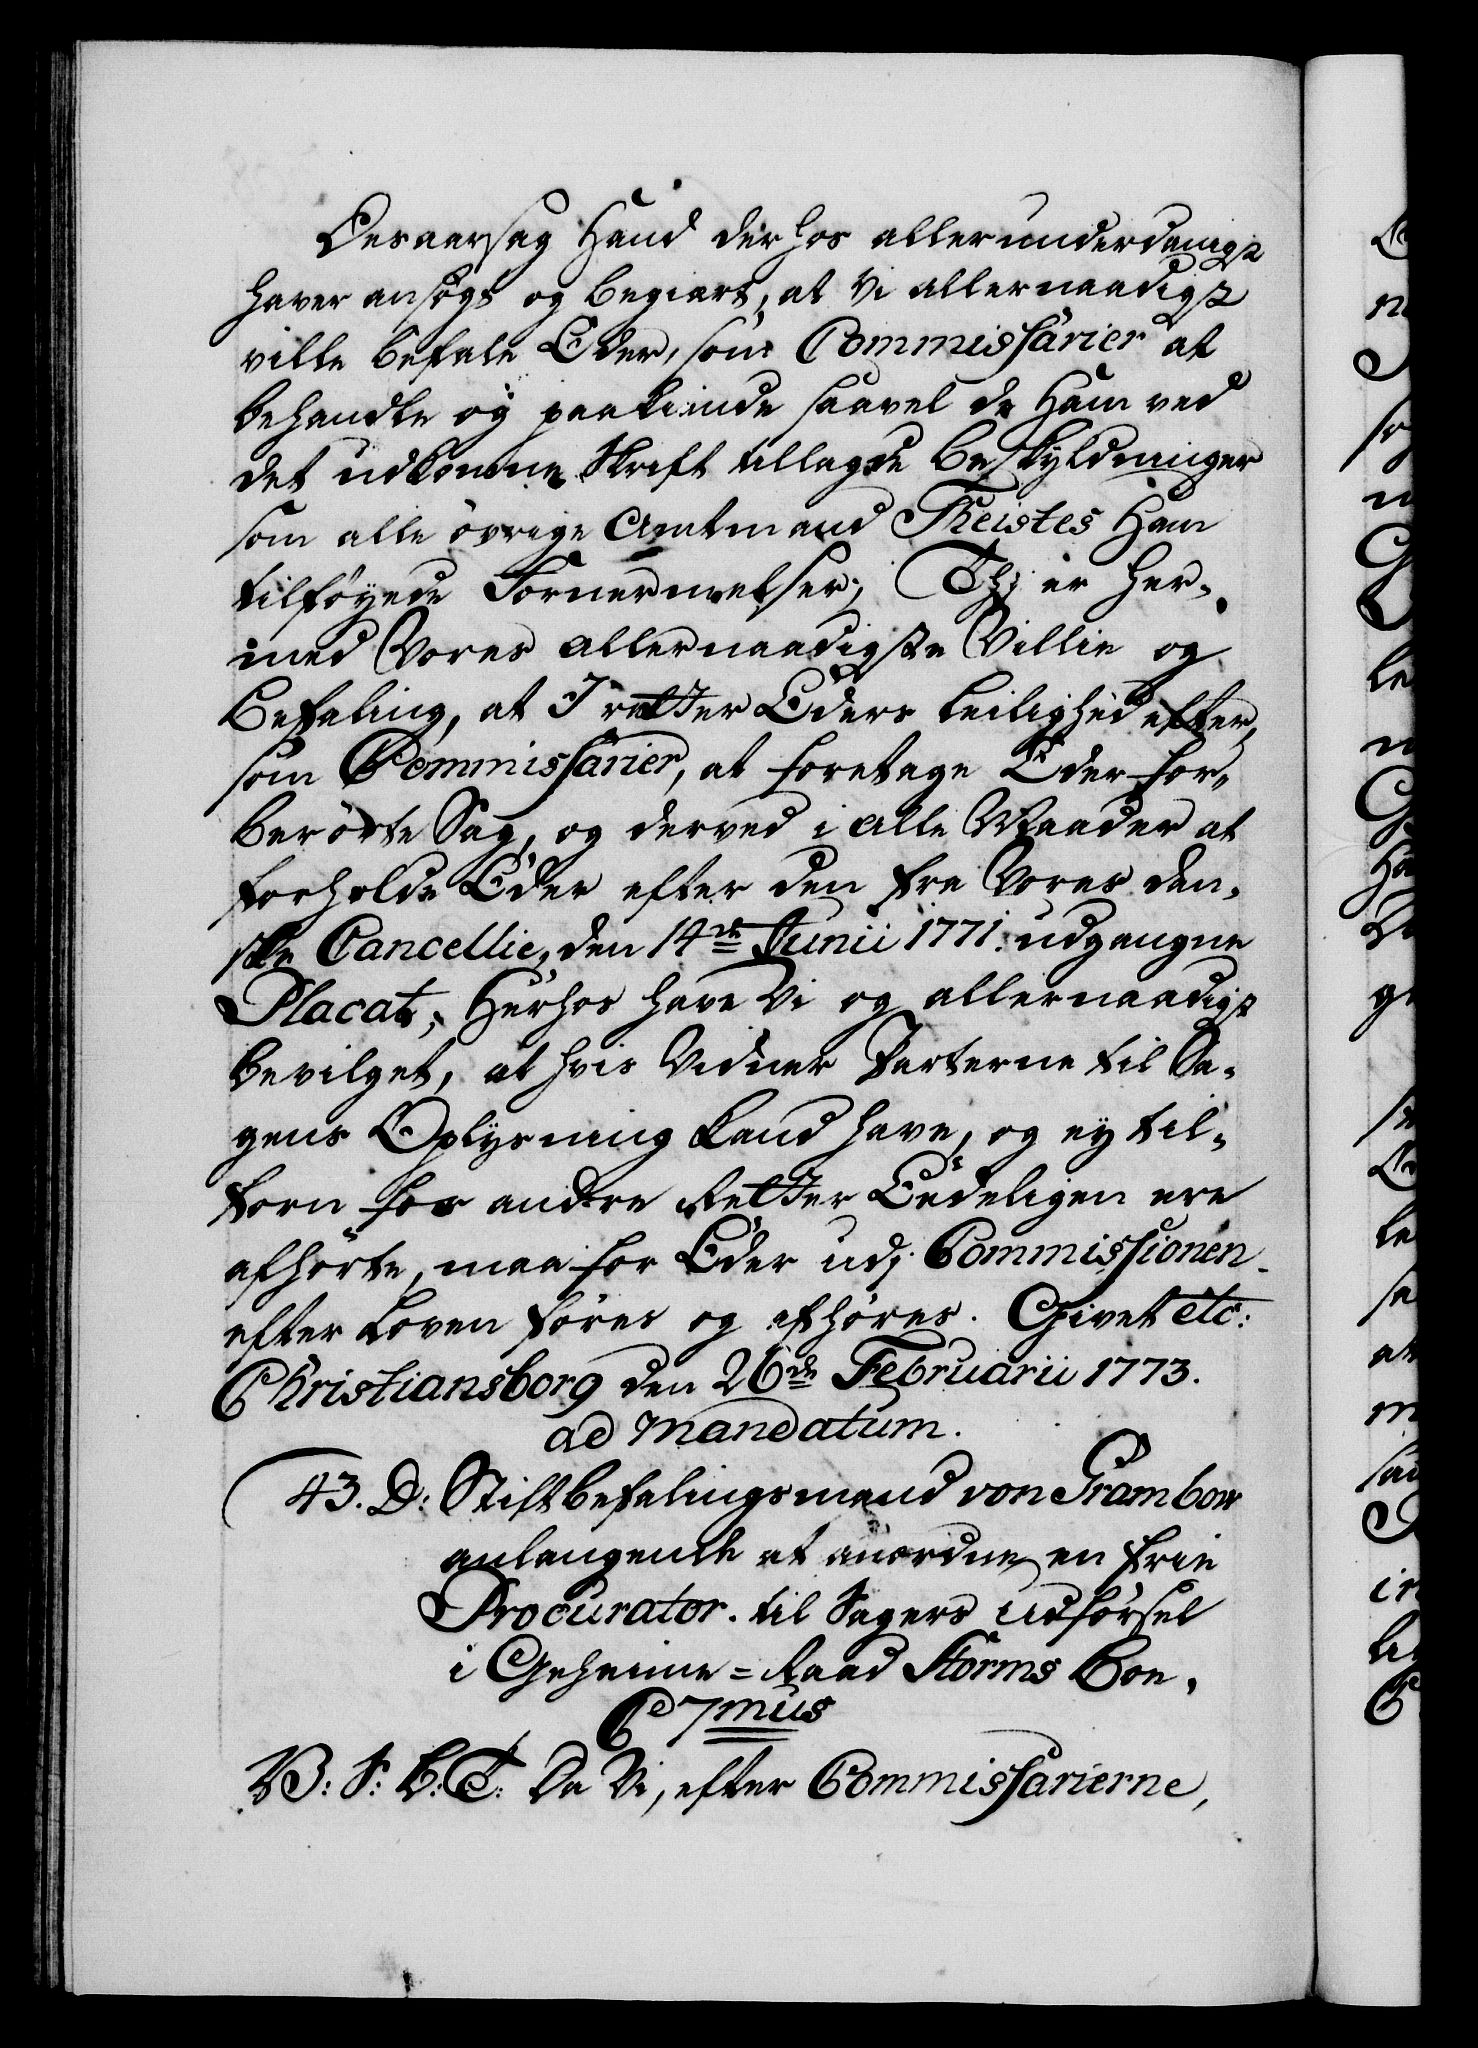 Desaarsag Hand derhos allerunderdanigst
haver ansögt og begiert, at Vi allernaadigst
ville befale Eder, som Commissarier at
behandle og paakiende saavel de Ham ved
det udkomne Skrift tillagde Beskyldninger
som alle övrige Amtmand Theistes Ham
tilföyede Fornermelser; Thj er her-
med Vores allernaadigste Villie og
Befaling, at I retter Eders Leilighed efter,
som Commissarier, at foretage Eder for-
berörte Sag, og derved i alle Maader at
forholde Eder efter den fra Vores dan-
ske Cancellie, den 14de Junii 1771. udgangne
Placat; Herhos have Vi og allernaadigst
bevilget, at hvis Vidner Parterne til Sa-
gens Oplysning kand have, og ey til-
forn for andre Retter Eedeligen ere
afhörte, maa for Eder udj Commissionen
efter Loven föres og afhöres. Givet etc:
Christiansborg den 26de Februarii 1773.
ad Mandatum.
43. D: Stiftbefalingsmand von Grambow
anlangende at anordne en frie
Procurator til Sagers Udförsel
i Geheime=Raad Storms Boe.
C 7mus
V: S: G: T: Da Vi, efter Commissarierne,